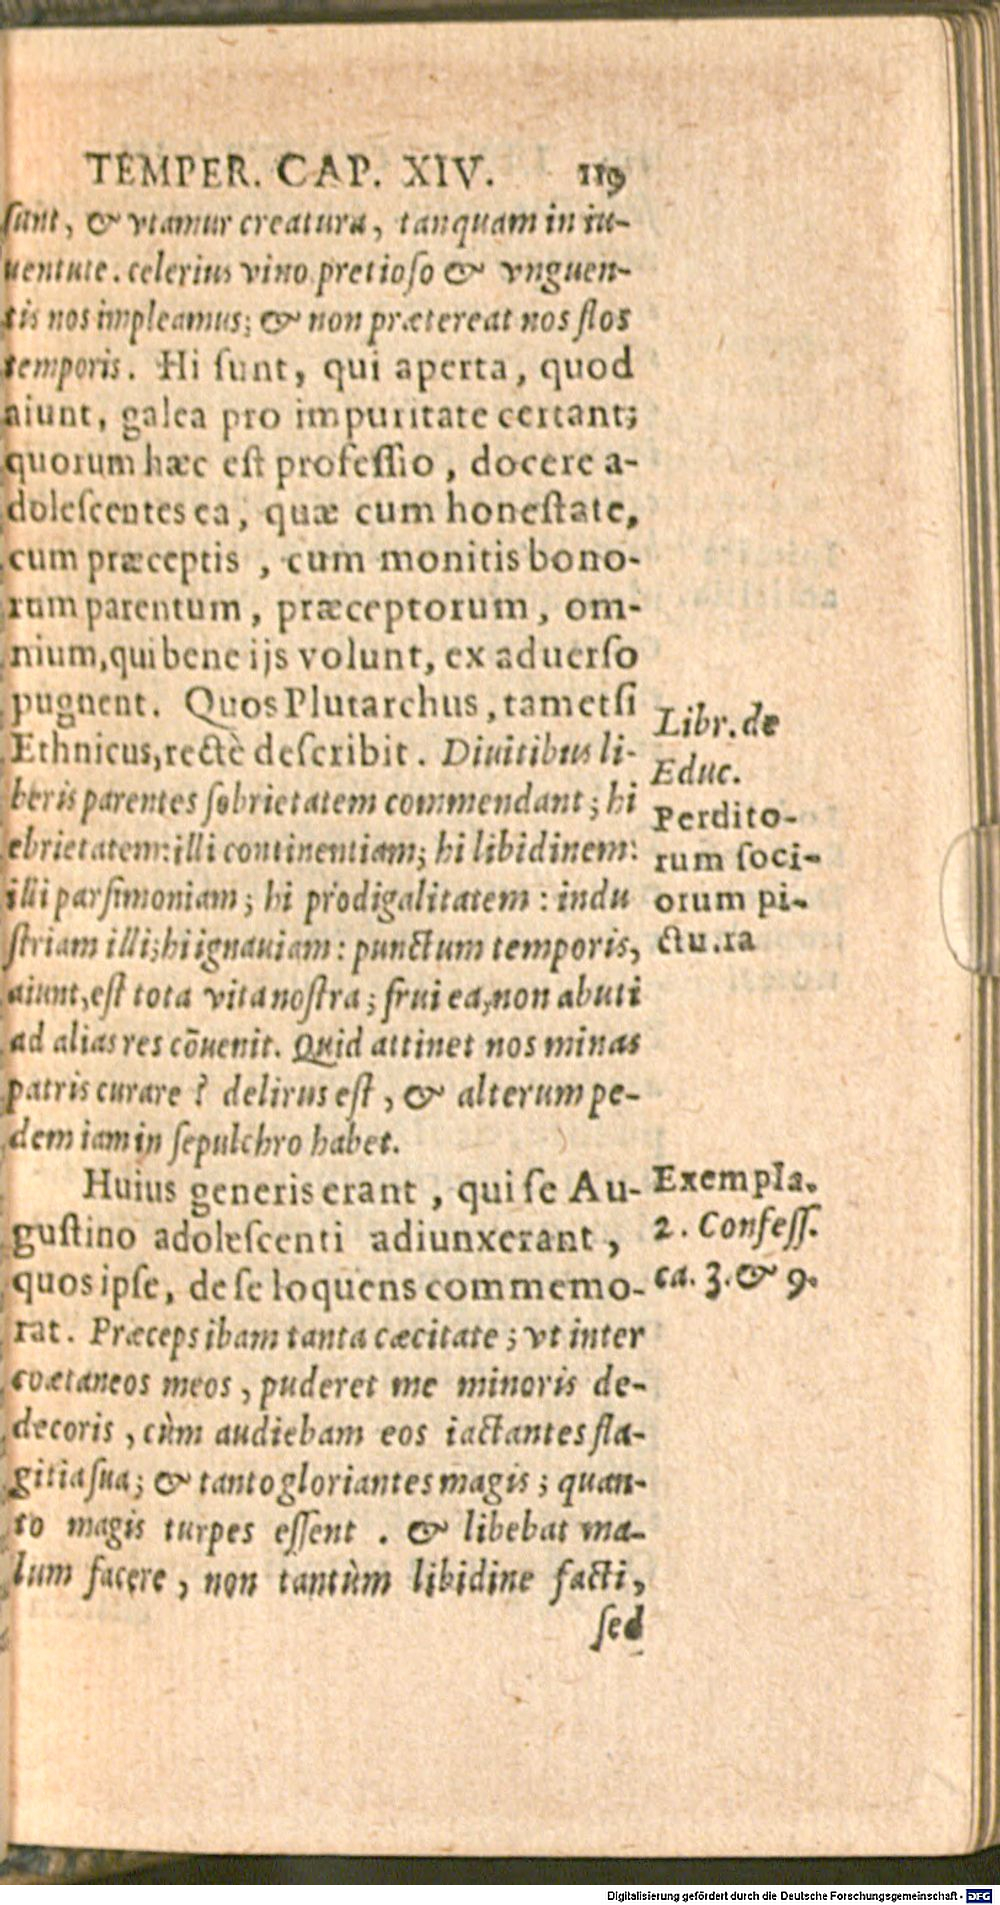 TEMPER. CAP. XIV. 119
ſunt, & vtamur creatura, tanquam in iu-
uentute. celerius vino pretioſo & vnguen-
tis nos impleamus; & non prætereat nos flos
temporis. Hi ſunt, qui aperta, quod
aiunt, galea pro impuritate certant;
quorum hæc eſt profeſſio, docere a-
doleſcentes ea, quæ cum honeſtate,
cum præceptis, cum monitis bono-
rum parentum, præceptorum, om-
nium, qui bene ijs volunt, ex aduerſo
pugnent. Quos Plutarchus, tametſi
Ethnicus, rectè deſcribit. Diuitibus li-
beris parentes ſobrietatem commendant; hi
ebrietatem: illi continentiam; hi libidinem:
illi parſimoniam; hi prodigalitatem: indu
ſtriam illi; hi ignauiam: punctum temporis,
aiunt, eſt tota vita noſtra; frui ea, non abuti
ad alias res cõuenit. Quid attinet nos minas
patris curare? delirus eſt, & alterum pe-
dem iam in ſepulchro habet.
Huius generis erant, qui ſe Au-
guſtino adoleſcenti adiunxerant,
quos ipſe, de ſe loquens commemo-
rat. Præceps ibam tanta cæcitate; vt inter
coætaneos meos, puderet me minoris de-
decoris, cùm audiebam eos iactantes fla-
gitia ſua; & tanto gloriantes magis; quan-
to magis turpes eſſent. & libebat ma-
lum facere, non tantùm libidine facti,
ſed
Libr. de
Educ.
Perdito-
rum ſoci-
orum pi-
ctu.ra
Exempla.
2. Confeſſ.
ca. 3. & 9.
Digitalisierung gefördert durch die Deutsche Forschungsgemeinschaft - DFG